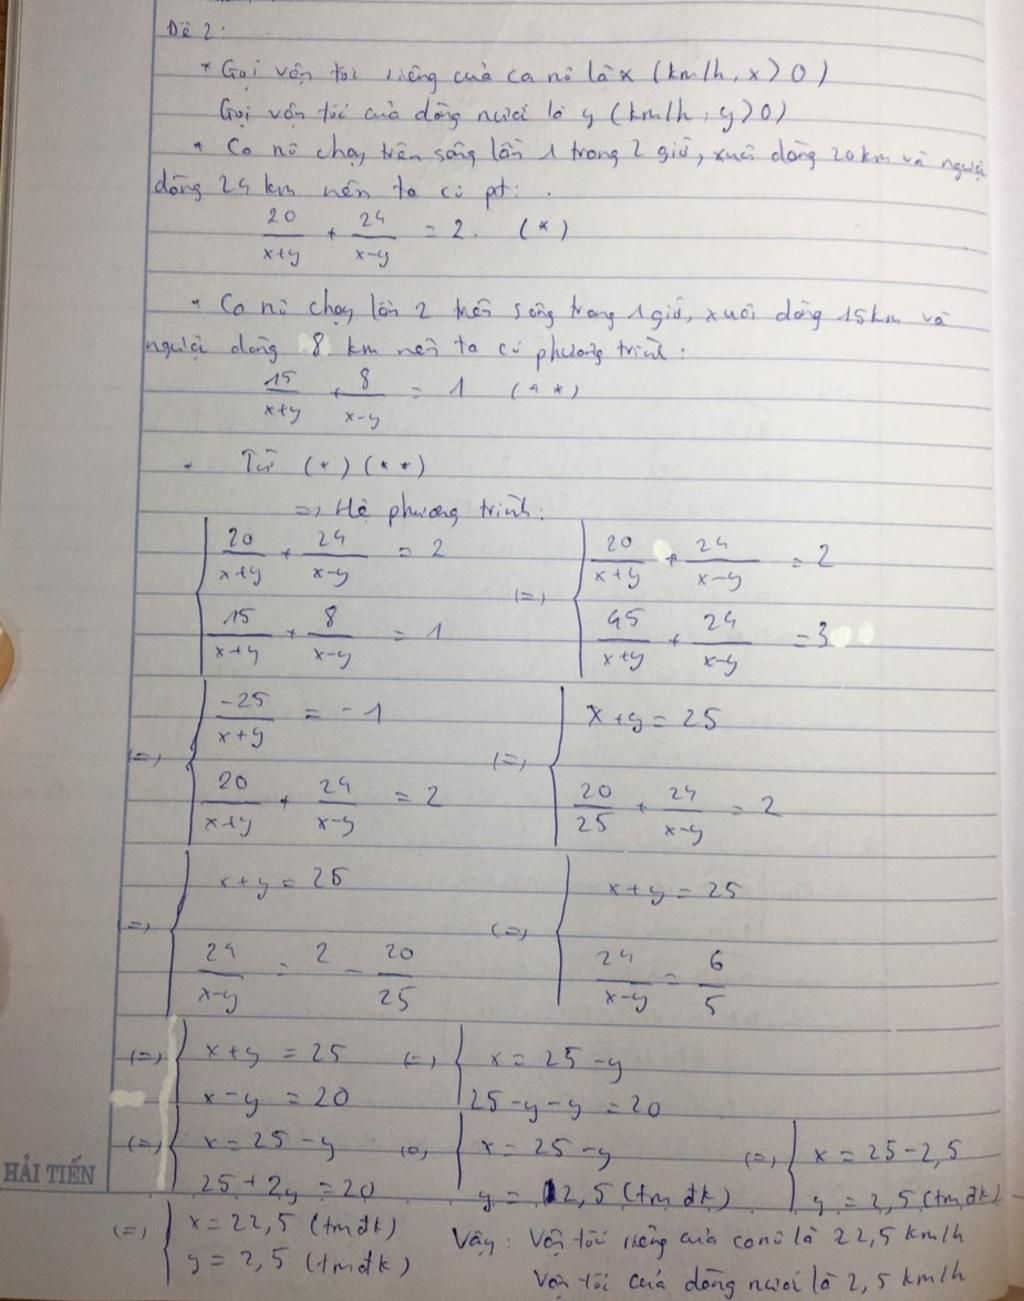 Đề 2:
* Gọi vận tốc riêng của ca nô là x (km/h, x > 0)
Gọi vận tốc của dòng nước là y (km/h, y > 0)
* Ca nô chạy trên sông lần 1 trong 2 giờ, xuôi dòng 20 km và ngược
dòng 24 km nên ta có pt:
20/(x+y) + 24/(x-y) = 2. (*)
* Ca nô chạy lần 2 trên sông trong 1 giờ, xuôi dòng 15 km và
ngược dòng 8 km nên ta có phương trình:
15/(x+y) + 8/(x-y) = 1 (**)
Từ (*) (**)
=> Hệ phương trình:
{ 20/(x+y) + 24/(x-y) = 2 (=) { 20/(x+y) + 24/(x-y) = 2
15/(x+y) + 8/(x-y) = 1 45/(x+y) + 24/(x-y) = 3
(=) { -25/(x+y) = -1 (=) { x+y = 25
20/(x+y) + 24/(x-y) = 2 20/25 + 24/(x-y) = 2
(=) { x+y = 25 (=) { x+y = 25
24/(x-y) = 2 - 20/25 24/(x-y) = 6/5
(=) { x+y = 25 (=) { x = 25-y
x-y = 20 25-y-y = 20
(=) { x = 25-y (=) { x = 25-y (=) { x = 25-2,5
25+2y = 20 y = 2,5 (tmđk) y = 2,5 (tmđk)
HẢI TIẾN
(=) { x = 22,5 (tmđk) Vậy: Vận tốc riêng của canô là 22,5 km/h
y = 2,5 (tmđk) Vận tốc của dòng nước là 2,5 km/h